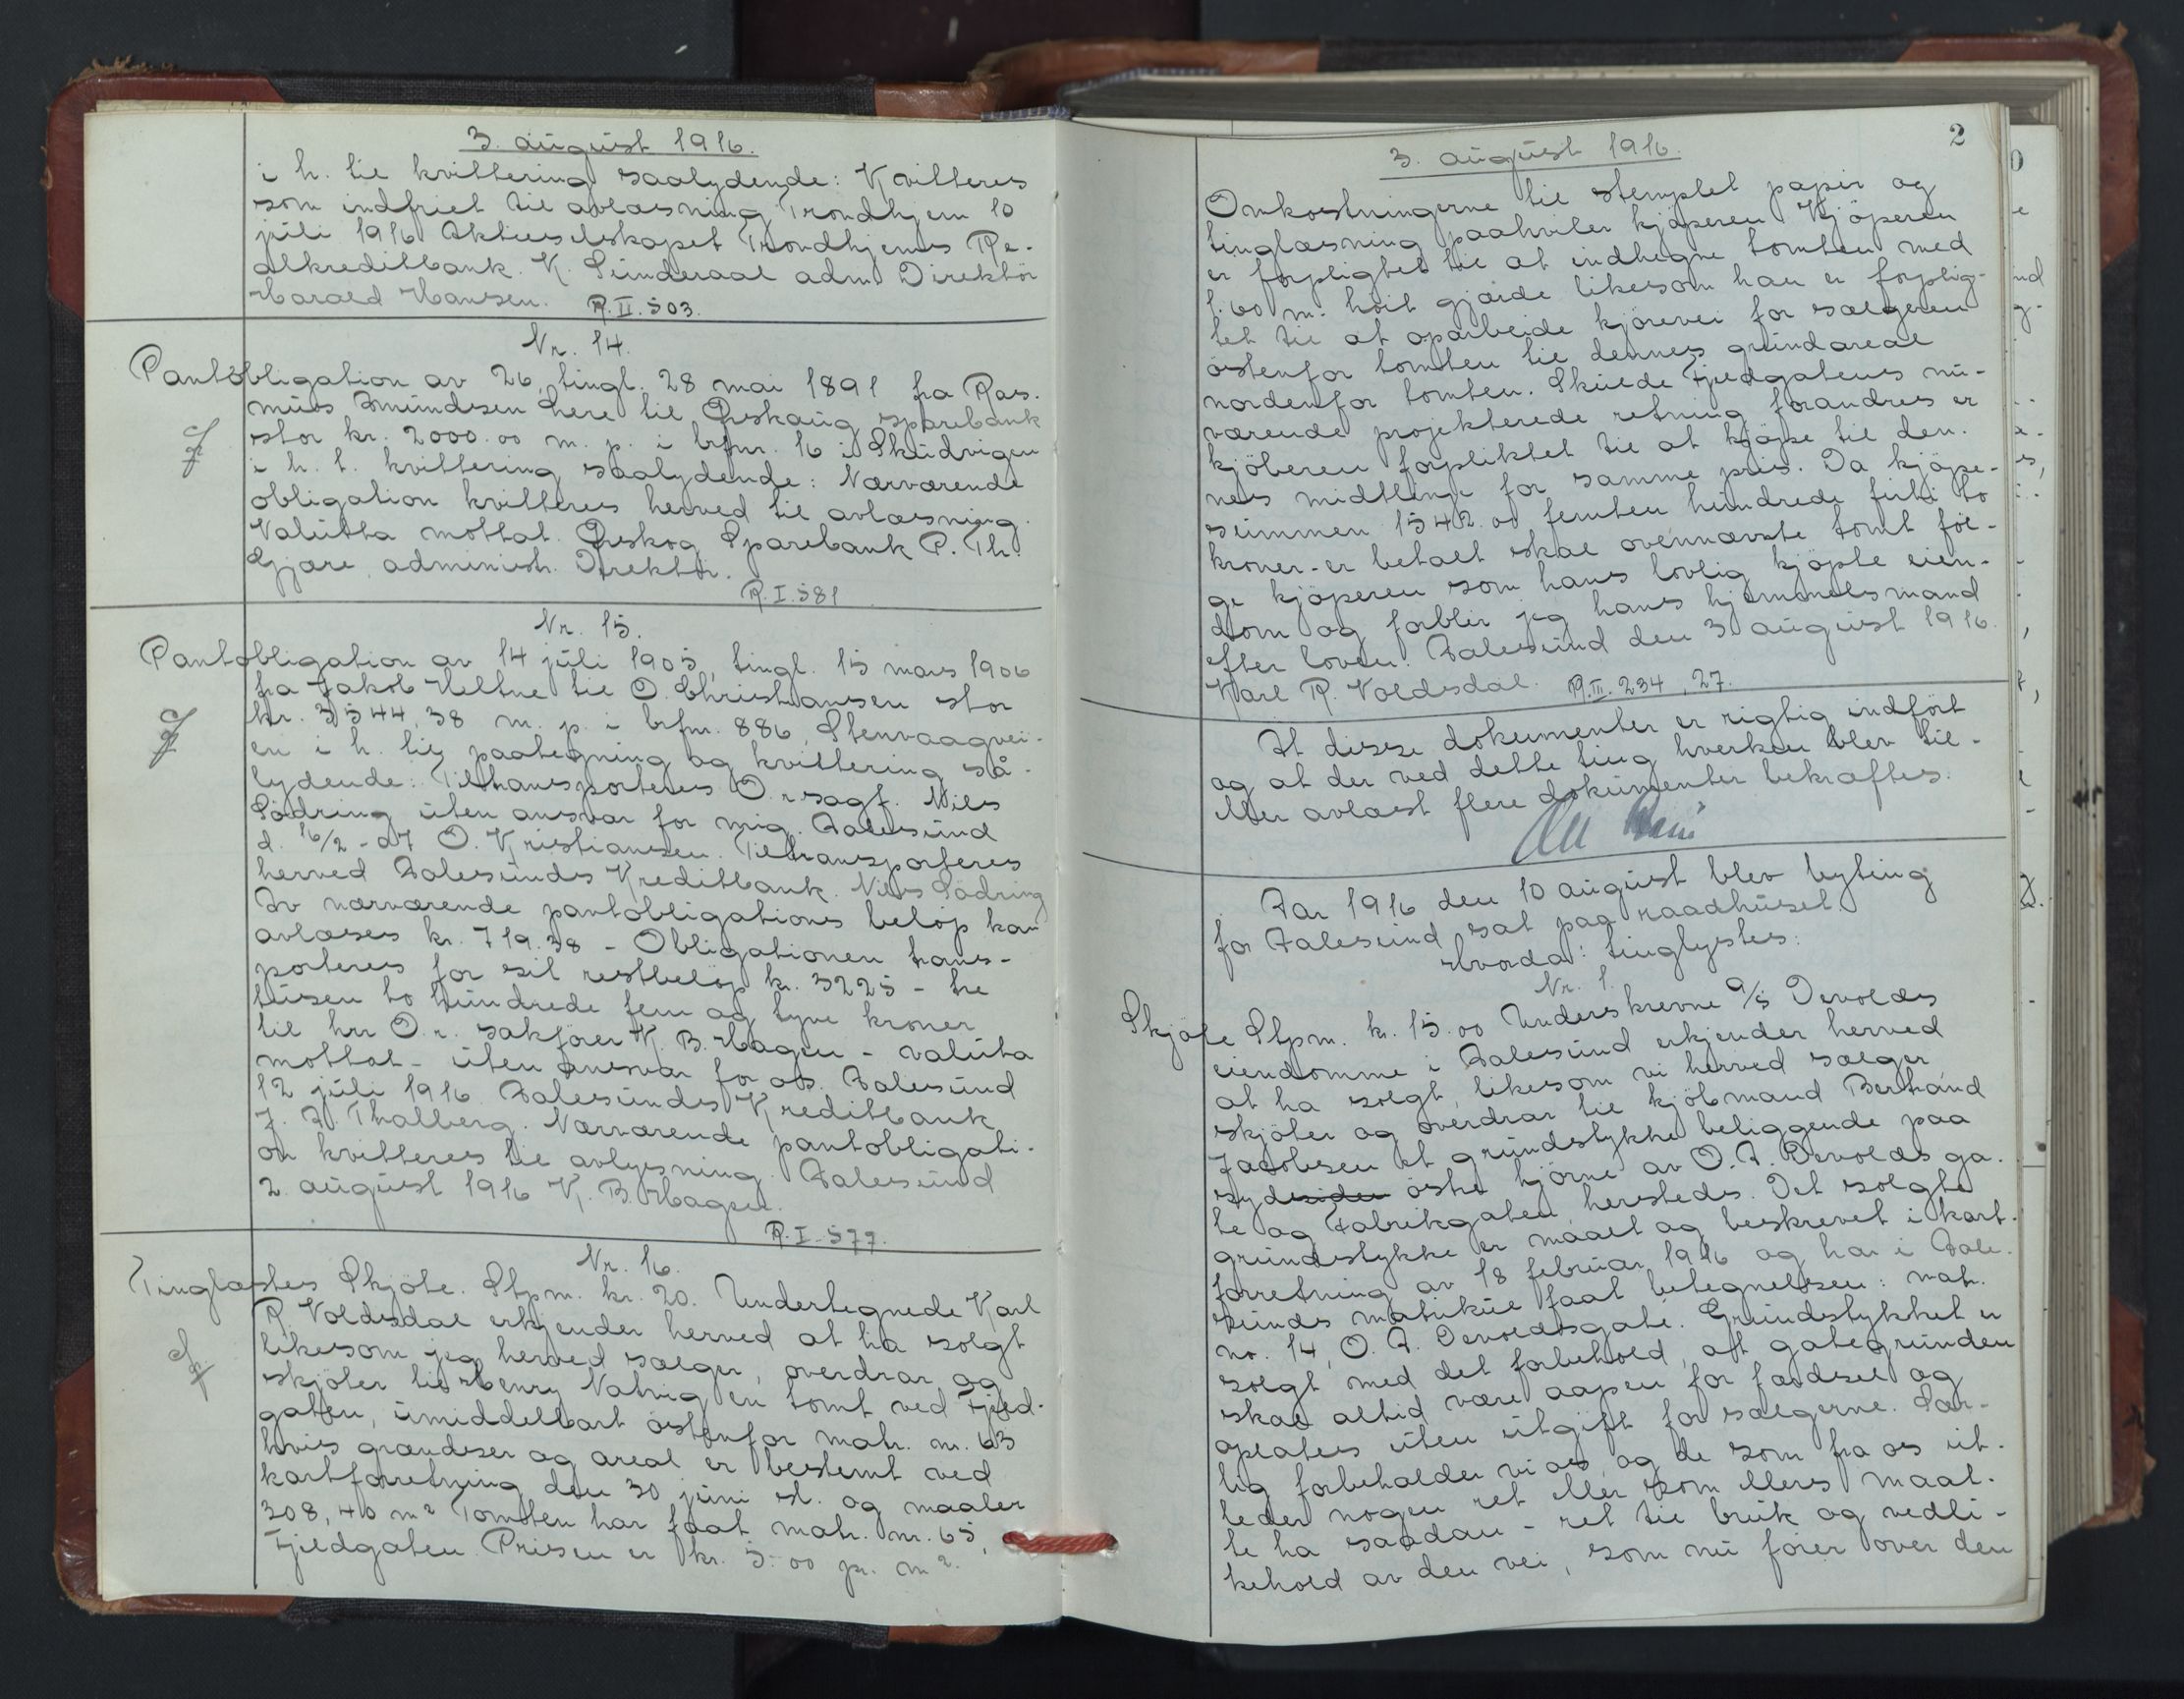 3. august 1916.
i h. til kvittering saalydende: Kvitteres
som indfriet til avlæsning Trondhjem 10
juli 1916 Aktieselskapet Trondhjems Re-
alkreditbank. K. Sunderaal adm. Direktör
Harald Hansen. R. II. 503.
Nr. 14.
Pantobligation av 26, tingl. 28 mai 1891 fra Ras-
mus Amundsen Lere til Ørskaug sparebank
stor kr. 2000.00 m. p. i brfnr. 16 i Skudvigen
i h. t. kvittering saalydende: Nærværende
obligation kvitteres herved til avlæsning.
Valutta mottat. Ørskog Sparebank P. Th.
Gjære, administr. Direktör.
R. I. 581
Nr. 15.
Pantobligation av 14 juli 1905, tingl. 15 mars 1906
fra Jakob Heltne til O. Christiansen stor
kr. 3544,38 m. p. i brfnr. 886, Stenvaagvei-
en i h. til paategning og kvittering så-
lydende: Tiltransporteres O.r.sagf. Niels
Södring uten ansvar for mig. Aalesund
d. 16/2-07 O. Kristiansen. Tiltransporteres
herved Aalesunds Kreditbank. Niels Södring
Av nærværende pantobligations belöp kan
avlæses kr. 719.38 - Obligationen trans-
porteres for sit restbelöp kr. 3225 - tre
tusen to hundrede fem og tyve kroner
til hrr O.r. sakförer K. B. Hagen - valuta
mottat - uten ansvar for os. Aalesund
12 juli 1916 Aalesunds Kreditbank
J. A. Thalberg. Nærværende pantobligati-
on kvitteres til avlysning. Aalesund
2. august 1916 K. B. Hagen.
R. I. 577.
Nr. 16.
Tinglæstes Skjöte. Stpm. kr. 20. Undertegnede Karl
R. Voldsdal erkjender herved at ha solgt
likesom jeg herved sælger, overdrar og
skjöter til Henry Natvig en tomt ved Fjeld-
gaten, umiddelbart östenfor matr. nr. 63
hvis grændser og areal er bestemt ved
kartforretning den 30 juni sl. og maaler
308,40 m² Tomten har faat matr. nr. 65,
Fjeldgaten. Prisen er kr. 5.00 pr. m².
2
3. august 1916.
Omkostningerne til stemplet papir og
tinglæsning paahviler kjöperen Kjöperen
er forpligtet til at indhegne tomten med
1.60 m. höit gjærde likesom han er forplig-
tet til at oparbeide kjörevei for sælgeren
östenfor tomten til dennes grundareal
nordenfor tomten. Skulde Fjeldgatens nu-
værende projekterede retning forandres er
kjöberen forpliktet til at kjöpe til den-
nes midtlinje for samme pris. Da kjöpe-
summen 1542.00 femten hundrede firti to
kroner - er betalt skal ovennævnte tomt föl-
ge kjöperen som hans lovlig kjöpte eien-
dom og forblir jeg hans hjemmelsmand
efter loven. Aalesund den 3 august 1916.
Karl R. Voldsdal. R. III. 234, 27.
At disse dokumenter er rigtig indfört
og at der ved dette ting hverken blev til-
eller avlæst flere dokumenter bekræftes.
Aar 1916 den 10 august blev byting
for Aalesund sat paa raadhuset.
Hvorda: tinglystes:
Nr. 1.
Skjöte Stpm. kr. 15.00 Underskrevne A/S Devolds
eiendomme i Aalesund erkjender herved
at ha solgt, likesom vi herved sælger
skjöter og overdrar til kjöbmand Bertrand
Jacobsen et grundstykke beliggende paa
sydsiden östre hjörne av O. A. Devolds ga-
te og Fabrikgaten hersteds. Det solgte
grundstykke er maalt og beskrevet i kart-
forretning av 18 februar 1916 og har i Aale-
sunds matrikul faat betegnelsen: matr.
no. 14, O. A. Devoldsgate. Grundstykket er
solgt med det forbehold, at gategrunden
skal altid være aapen for færdsel og
oplates uten utgift for sælgerne. Sær-
lig forbeholder vi os, og de som fra os ut-
leder nogen ret eller som ellers maat-
te ha saadan - ret til bruk og vedli-
kehold av den vei, som nu förer over den